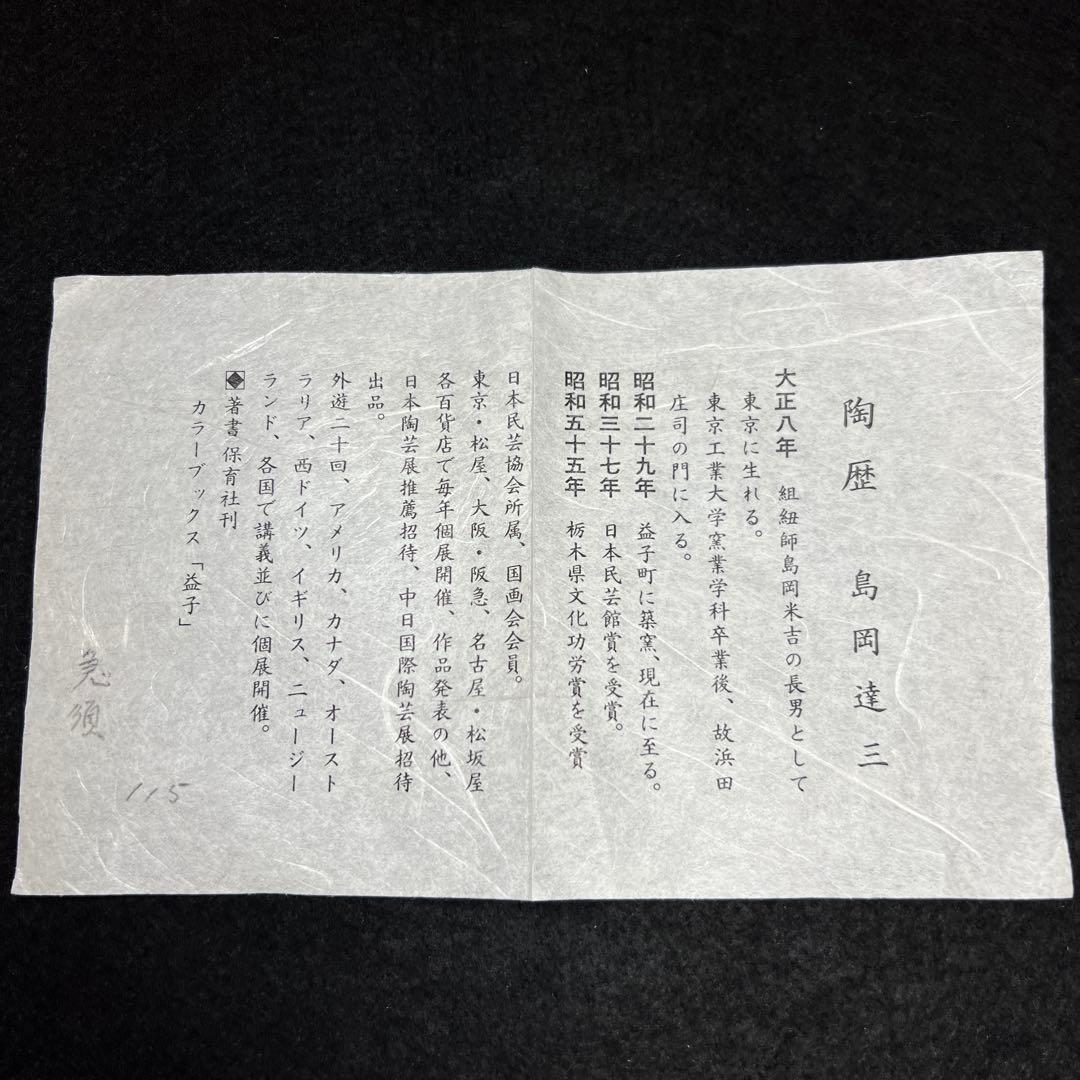 陶歴 島岡達三
大正八年 組紐師島岡米吉の長男として
東京に生れる。
東京工業大学窯業学科卒業後、故浜田
庄司の門に入る。
昭和二十九年 益子町に築窯、現在に至る。
昭和三十七年 日本民芸館賞を受賞。
昭和五十五年 栃木県文化功労賞を受賞
日本民芸協会所属、国画会会員。
東京・松屋、大阪・阪急、名古屋・松坂屋
各百貨店で毎年個展開催、作品発表の他、
日本陶芸展推薦招待、中日国際陶芸展招待
出品。
外遊二十回、アメリカ、カナダ、オースト
ラリア、西ドイツ、イギリス、ニュージー
ランド、各国で講義並びに個展開催。
著書 保育社刊
カラーブックス「益子」
急須
115